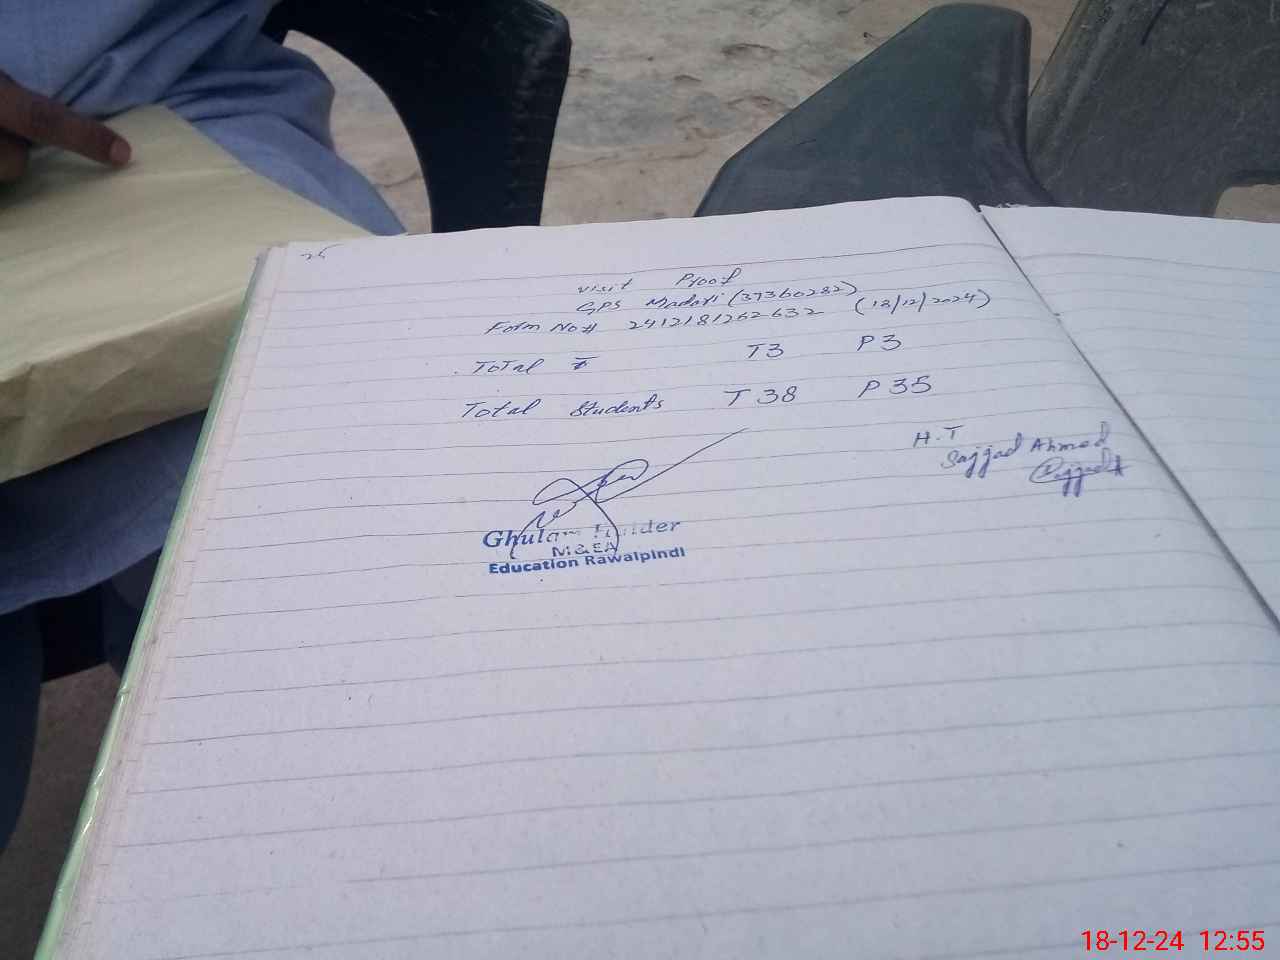 25
Visit Proof
GPS Madari (37360282)
Form No# 2412181262632 (18/12/2024)
Total T T3 P3
Total Students T 38 P 35
H.T
Sajjad Ahmed
Sajjad A
Ghulam Haider
M&EA
Education Rawalpindi
18-12-24 12:55